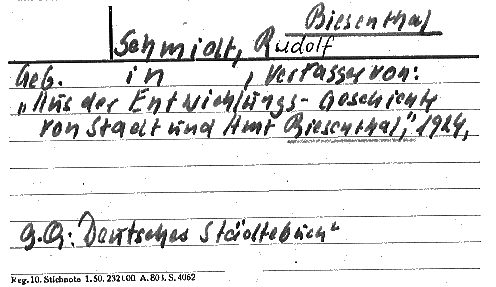 Biesenthal
Schmidt, Rudolf
Geb. in , Verfasser von:
„Aus der Entwicklungs-Geschichte
von Stadt und Amt Biesenthal," 1924,
G.Q: Deutsches Städtebuch"
Reg. 10. Stichnote 1. 50. 232100 A. 803. S. 4062